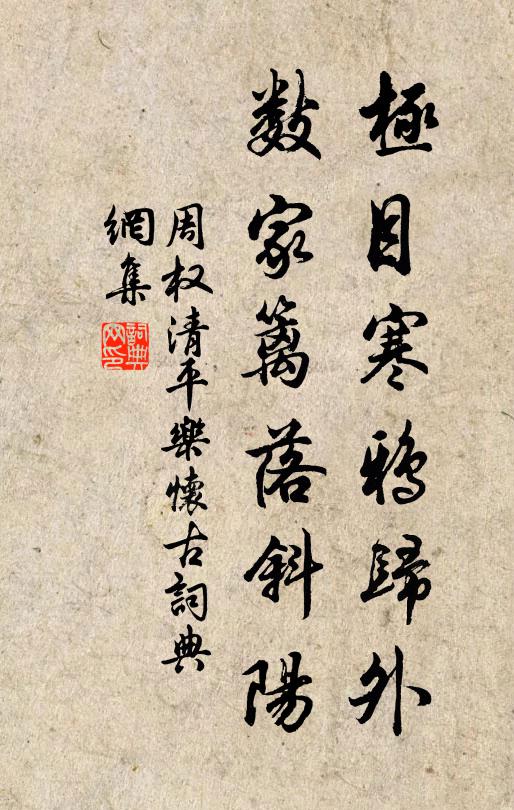 極目寒鴉歸外
數家篱落斜陽
周权清平樂懷古詞典
網集
詞典網印